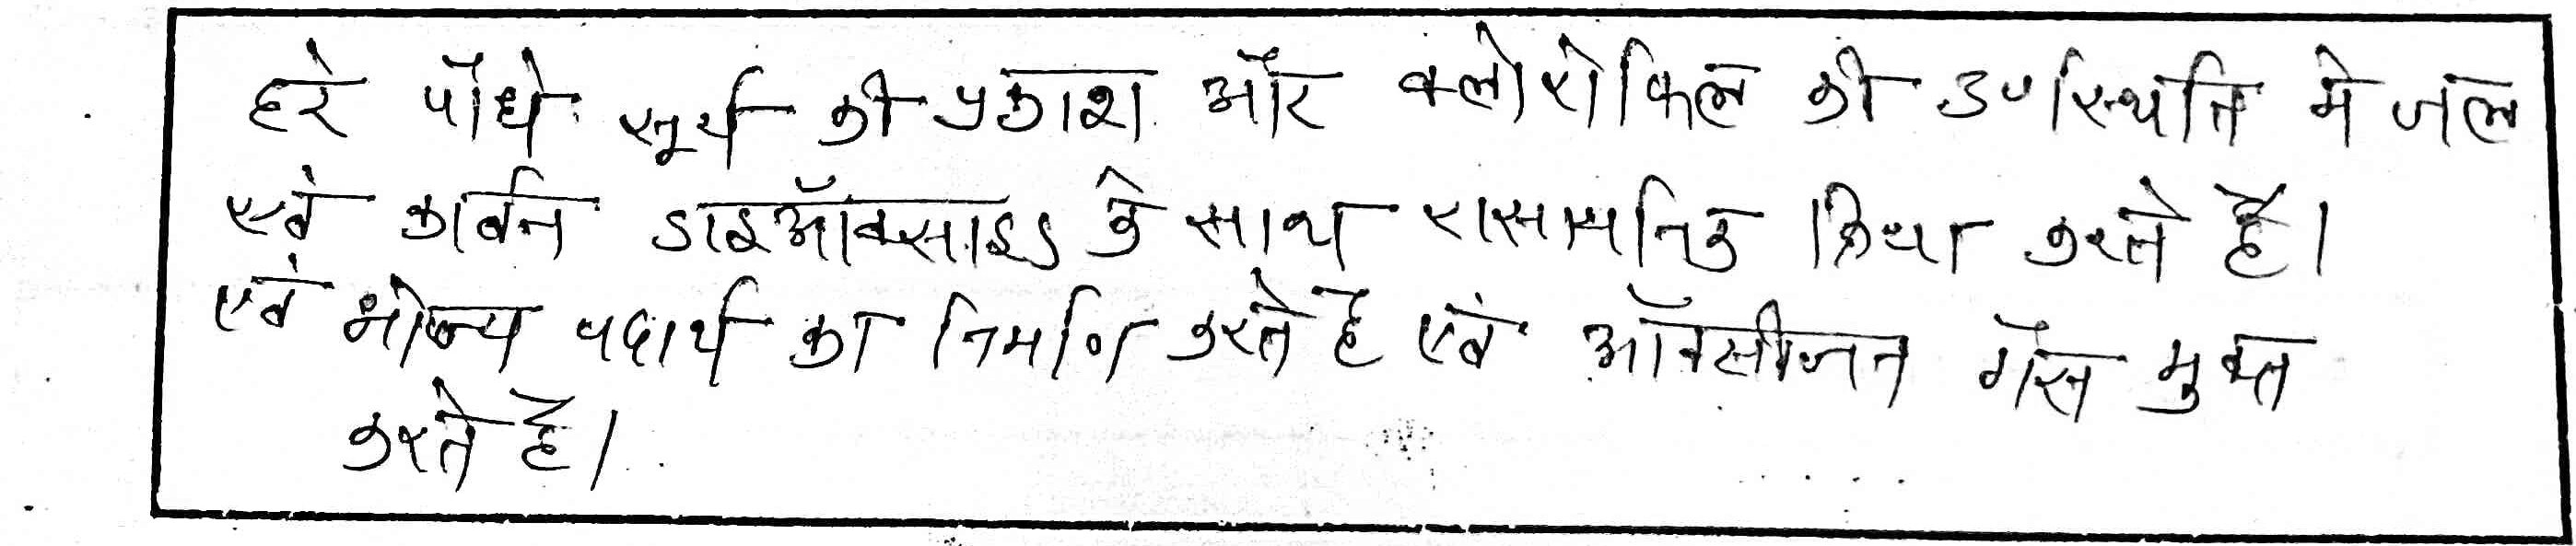 हरे पौधे सूर्य की प्रकाश और क्लोरोफिल की उपस्थिति मे जल
एवं कार्बन डाइऑक्साइड के साथ रासायनिक क्रिया करते है।
एवं भोज्य पदार्थ का निर्माण करते है एवं ऑक्सीजन गैस मुक्त
करते है।